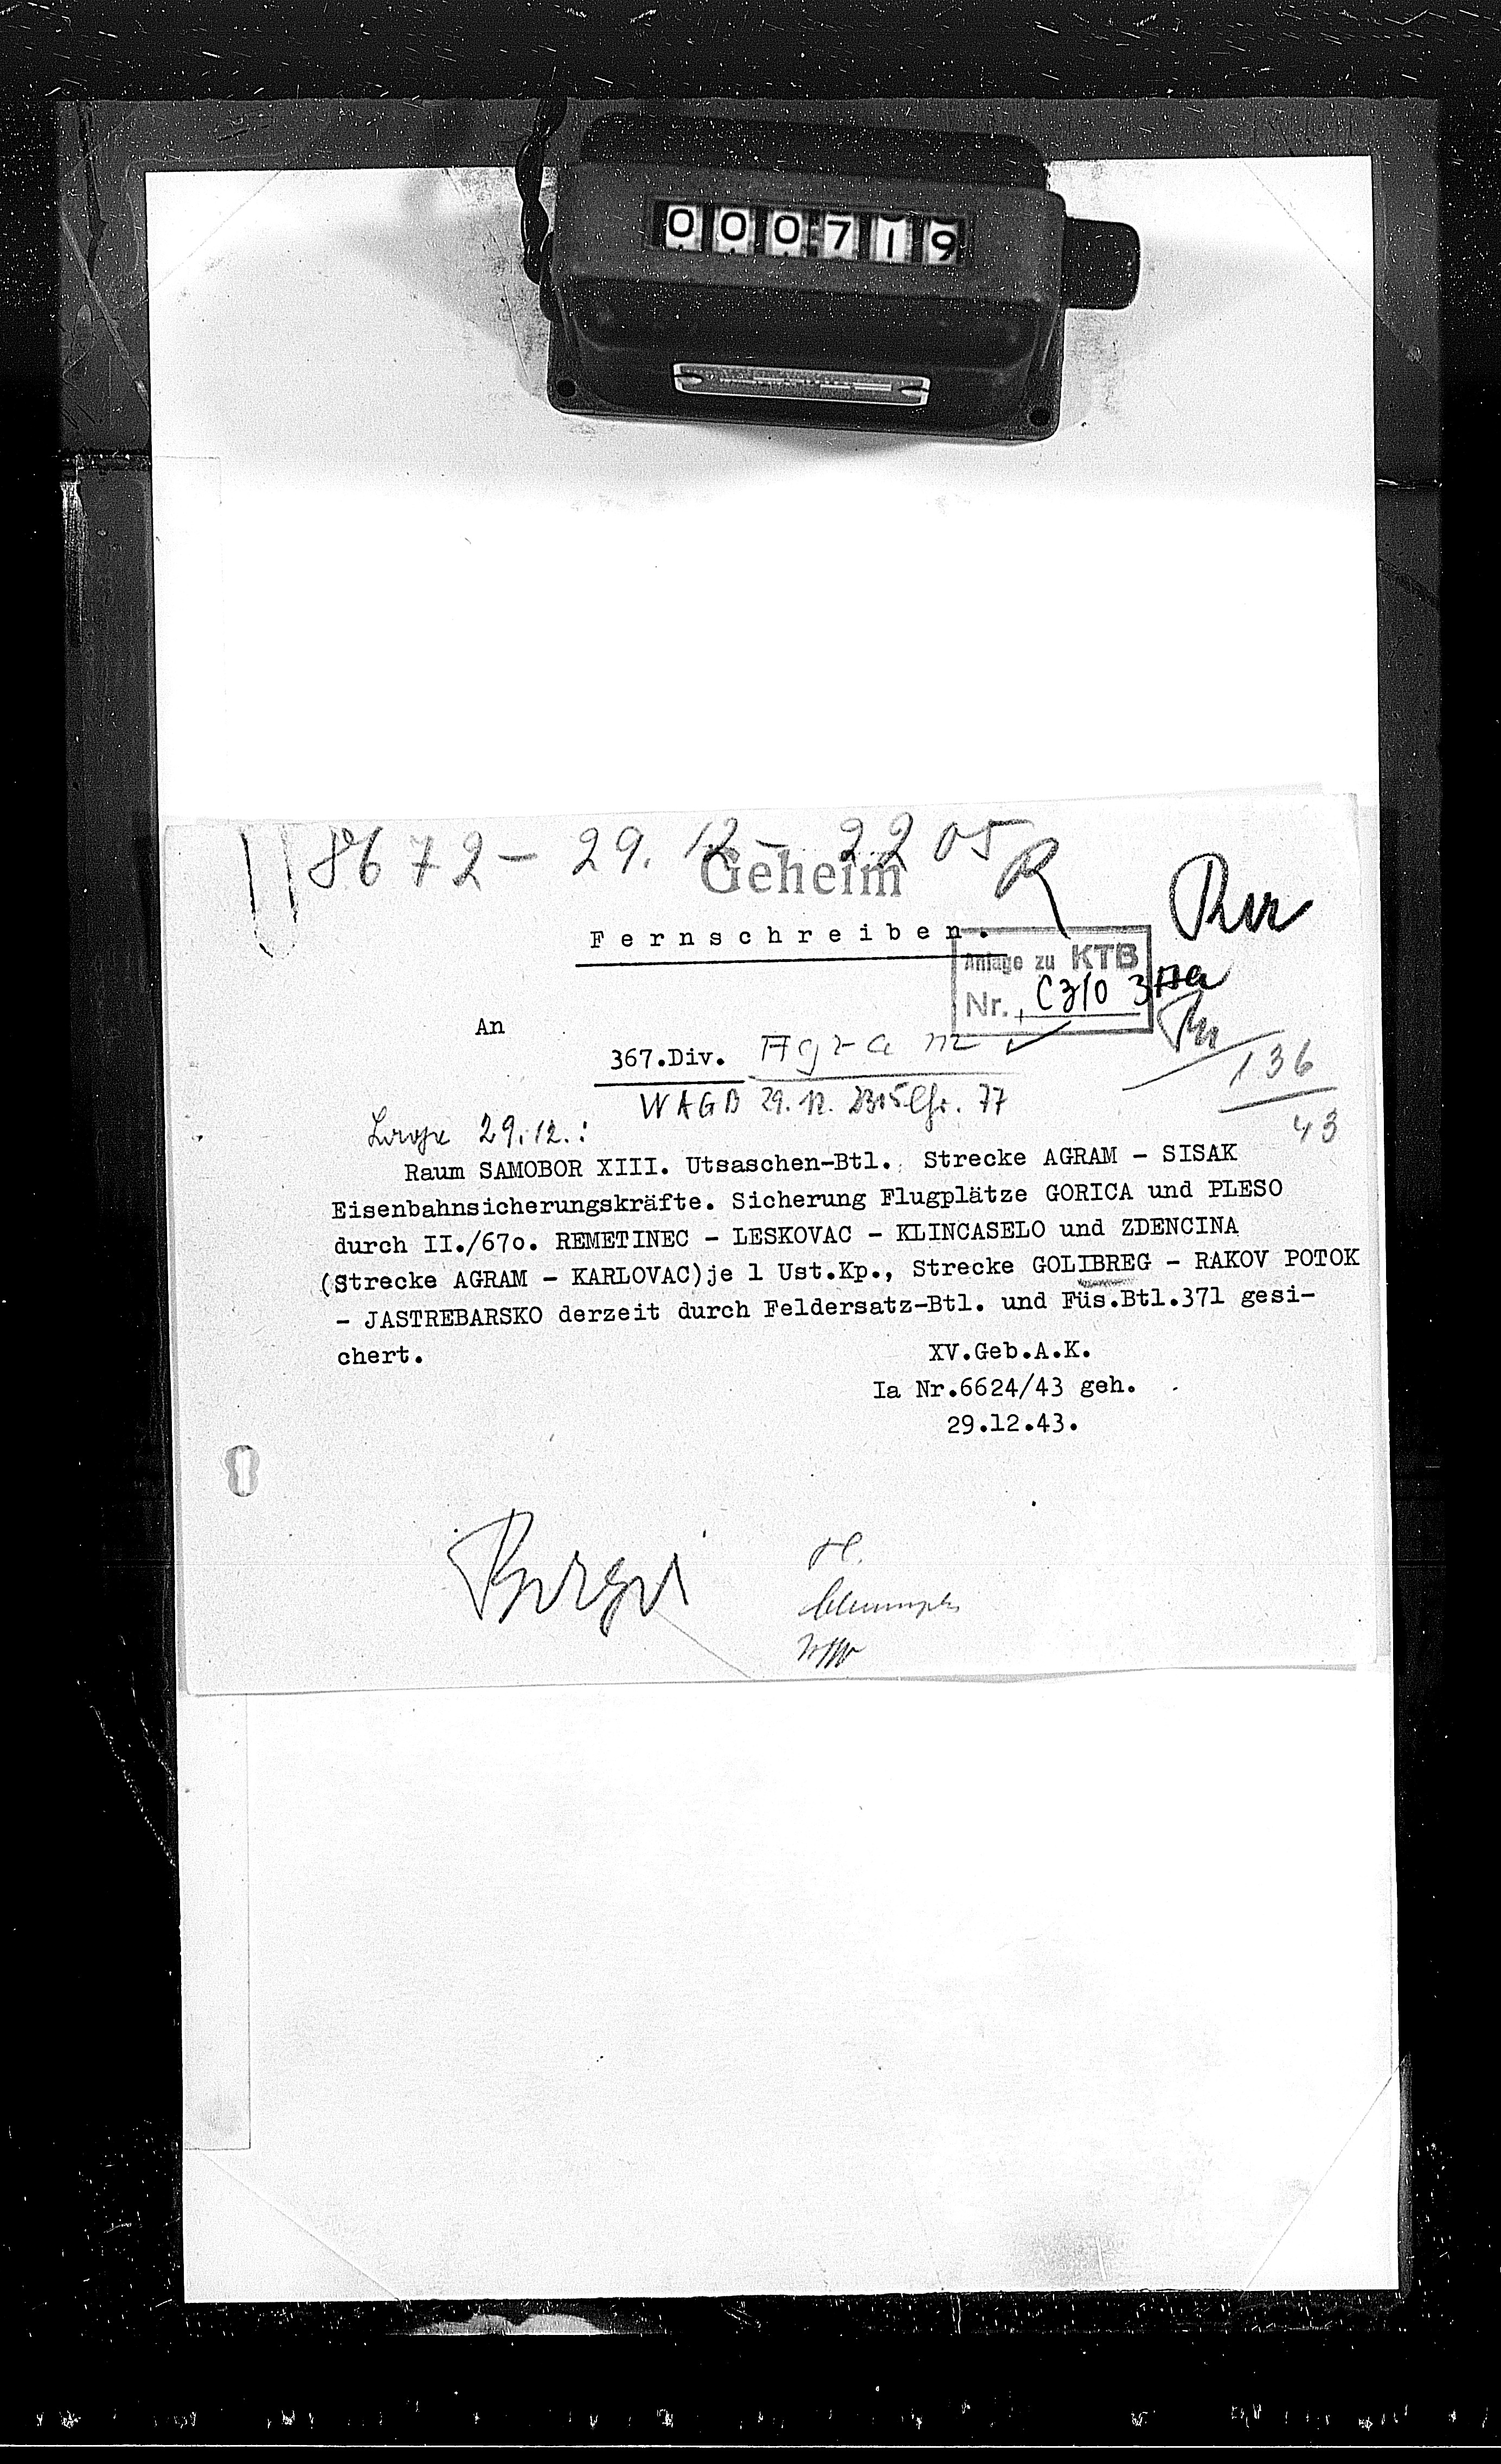 000719
8672 - 29. 12 - 2205
Geheim
Fernschreiben.
Anlage zu KTB
Nr.
An
367.Div. Agram
136
43
29.12.:
Raum SAMOBOR XIII. Utsaschen-Btl. Strecke AGRAM - SISAK
Eisenbahnsicherungskräfte. Sicherung Flugplätze GORICA und PLESO
durch II./67o. REMETINEC - LESKOVAC - KLINCASELO und ZDENCINA
(Strecke AGRAM - KARLOVAC)je 1 Ust.Kp., Strecke GOLIBREG - RAKOV POTOK
- JASTREBARSKO derzeit durch Feldersatz-Btl. und Füs.Btl.371 gesi-
chert.
XV.Geb.A.K.
Ia Nr.6624/43 geh.
29.12.43.